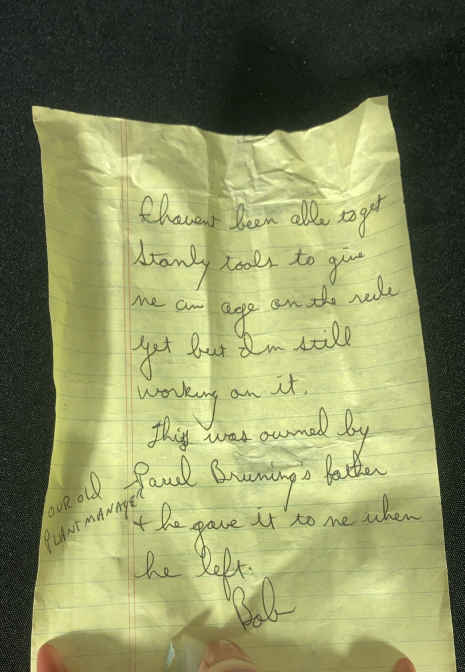 I havent been able to get
Stanly tools to give
me an age on the rule
yet but Im still
working on it.
This was owned by
Paul Bruning's father
OUR OLD
PLANT MANAGER
& he gave it to me when
he left.
Bob